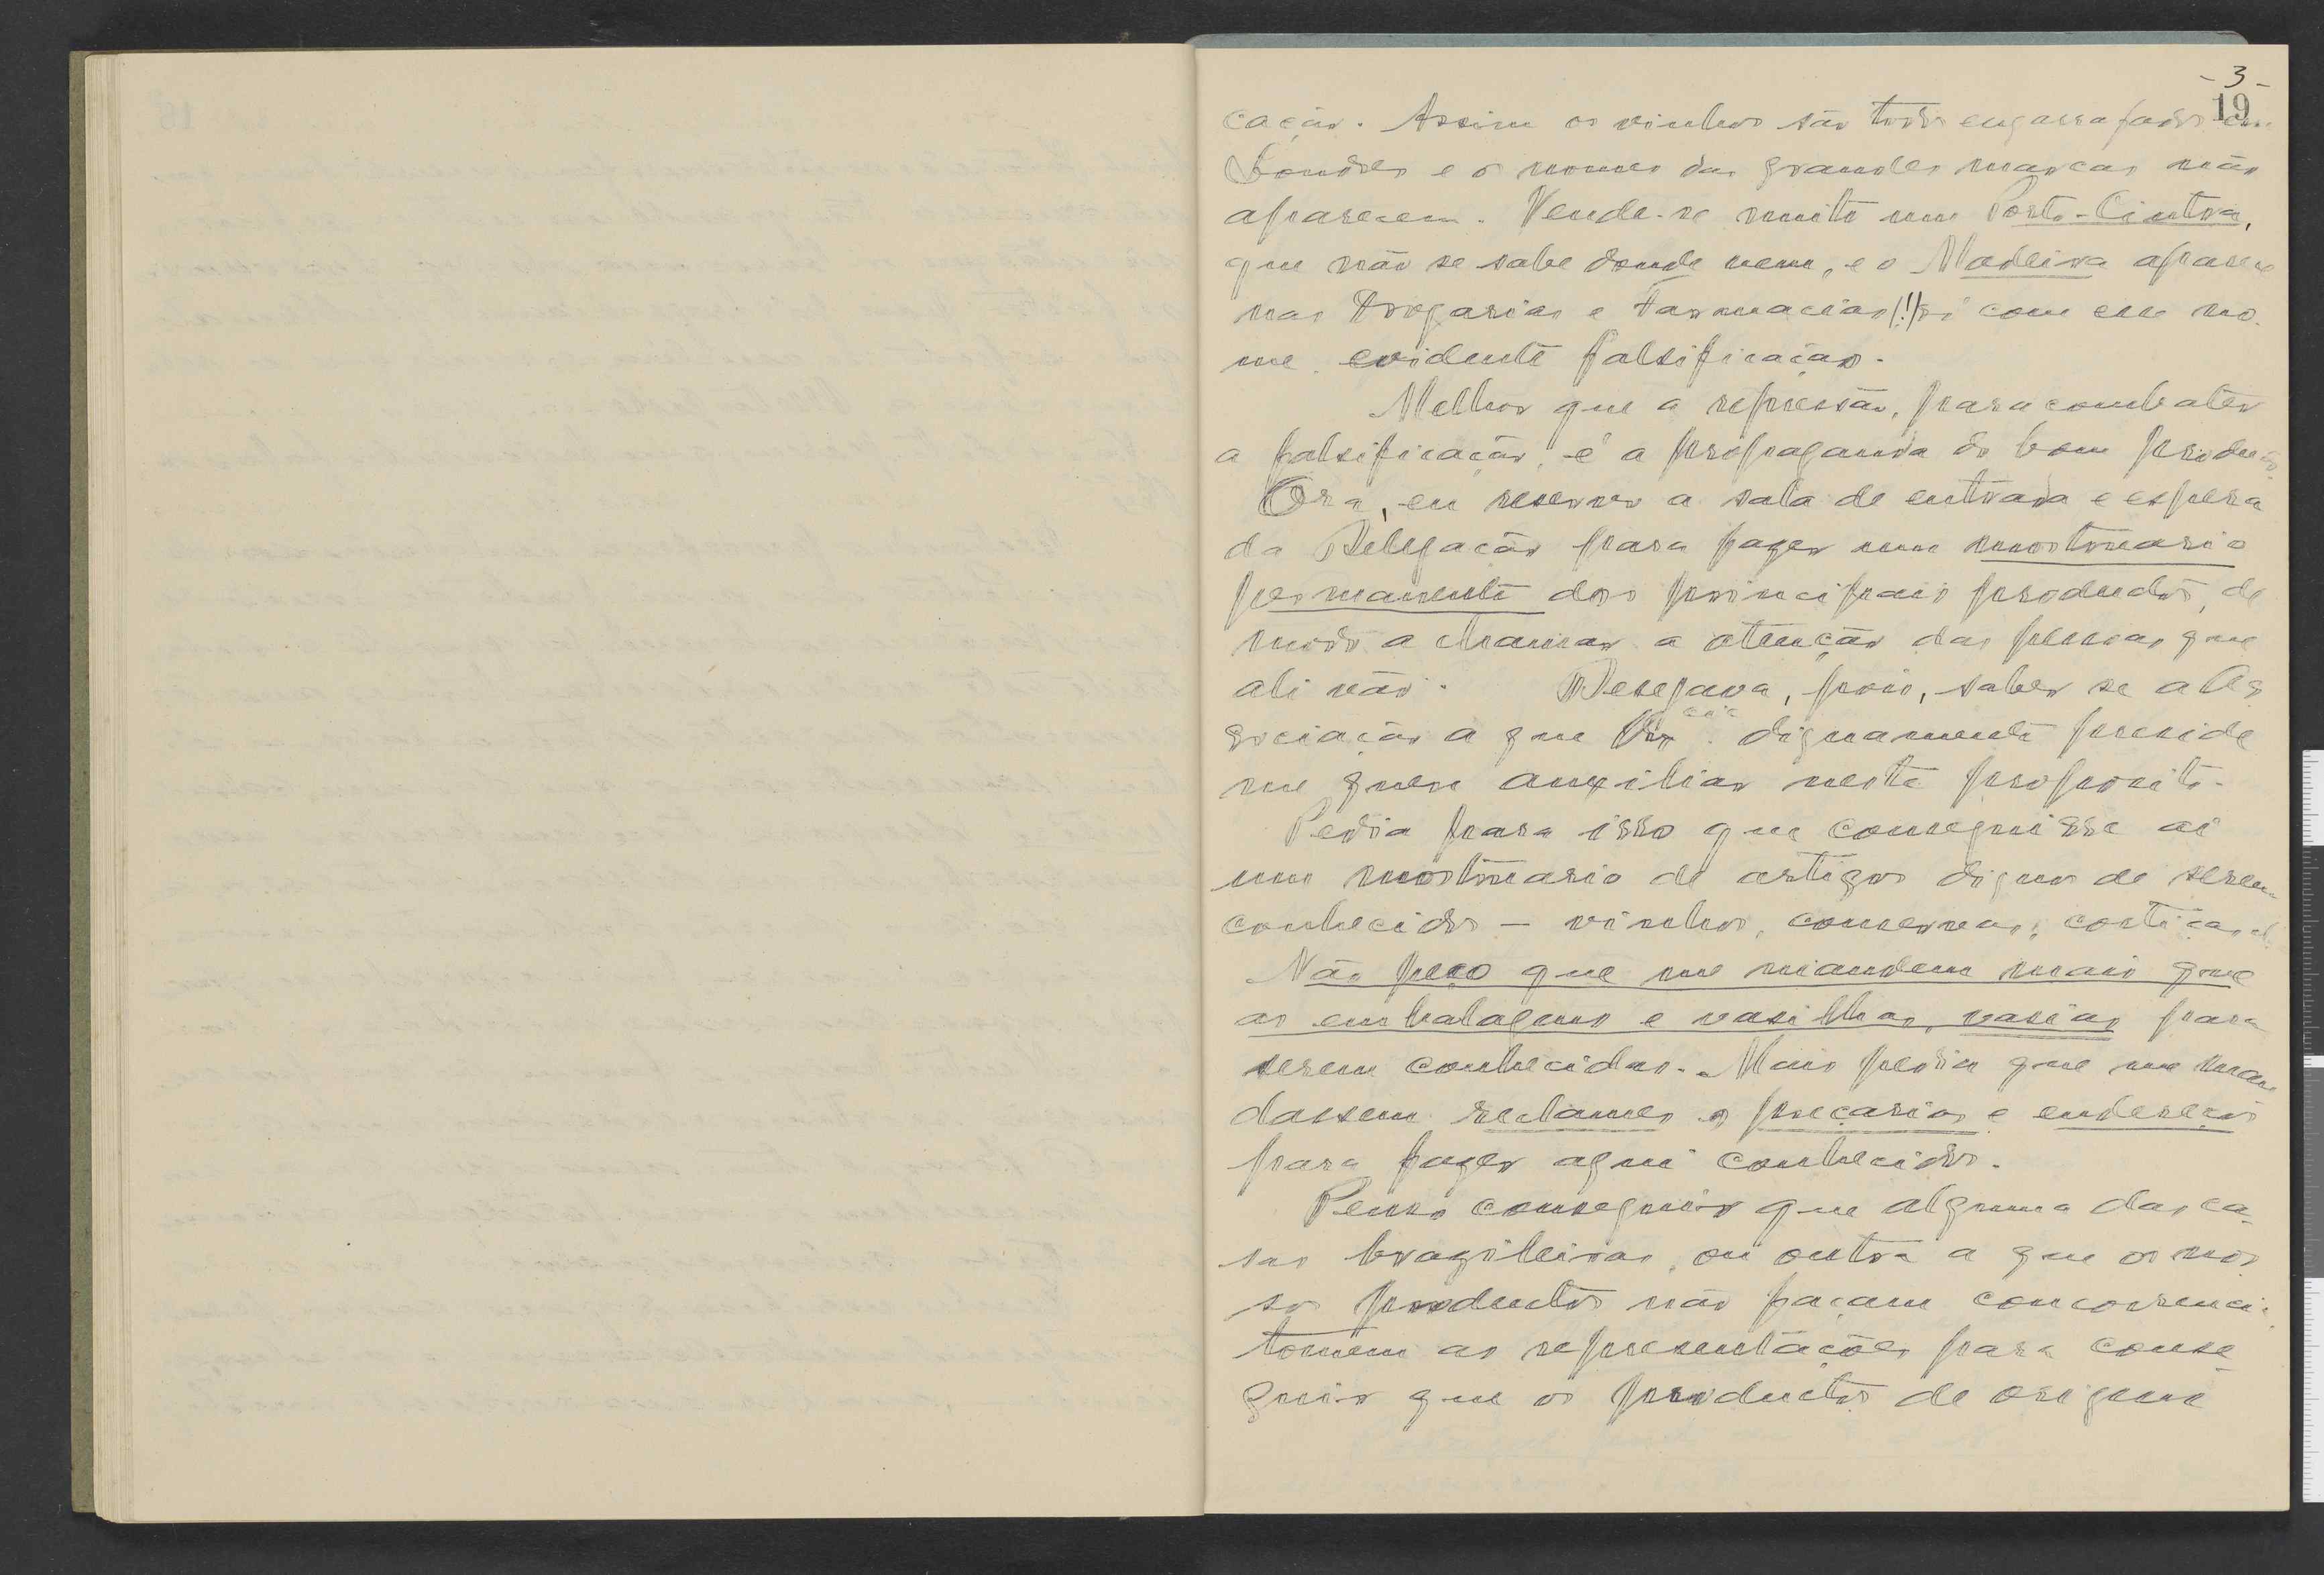 - 3 -
19
cação. Assim os vinhos são todos engarrafados em
Londres e o nomes das grandes marcas não
aparecem. Vende-se muito um Porto-Cintra,
que não se sabe donde vem, e o Madeira aparece
nas Drogarias e Farmacias (!) só com esse no-
me, evidente falsificação.
Melhor que a repressão, para combater
a falsificação, é a propaganda do bom producto.
Ora, eu reservo a sala de entrada e espera
da Delegação para fazer um mostruario
permanente dos principais productos, de
modo a chamar a atenção das pessoas que
ali vão. Desejava, pois, saber se a As
sociação a que V. dignamente preside
me quer auxiliar neste proposito.
Pedia para isso que conseguisse aí
um mostruario de artigos dignos de serem
conhecidos - vinhos, conservas, cortiças, etc.
Não peço que me mandem mais que
as embalagens e vasilhas, vasias para
serem conhecidas. Mais pedia que me man
dassem reclames, preçarios e endereços
para fazer aqui conhecidos.
Penso conseguir que alguma das ca-
sas brazileiras, ou outra a que os nos
sos productos não façam concorrencia,
tomem as representações para conse-
guir que os productos de origem